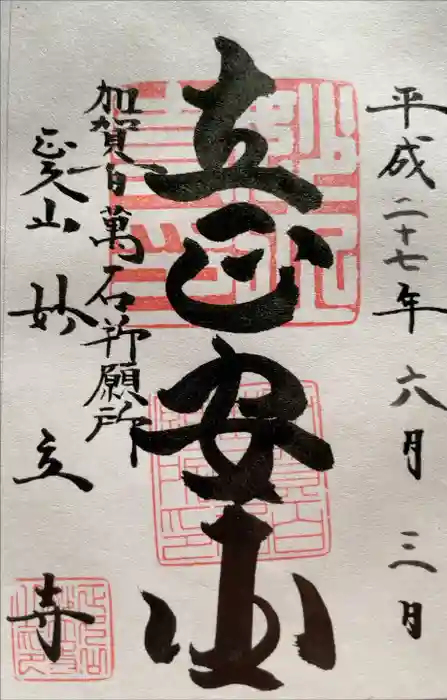 平成二十七年 六月 三日
立正安国
加賀百萬石祈願所
正久山 妙立寺